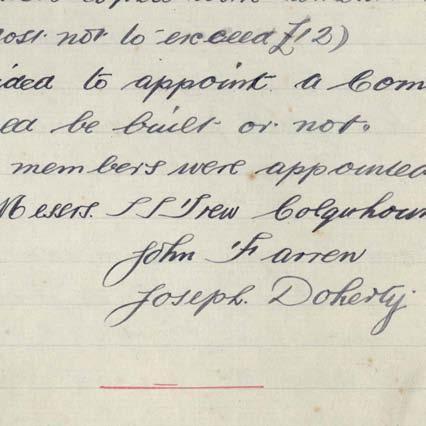 cost not to exceed £12)
ided to appoint a Com
ed be built or not.
members were appointed
Messrs. Colquhoun
John Farren
Joseph Doherty